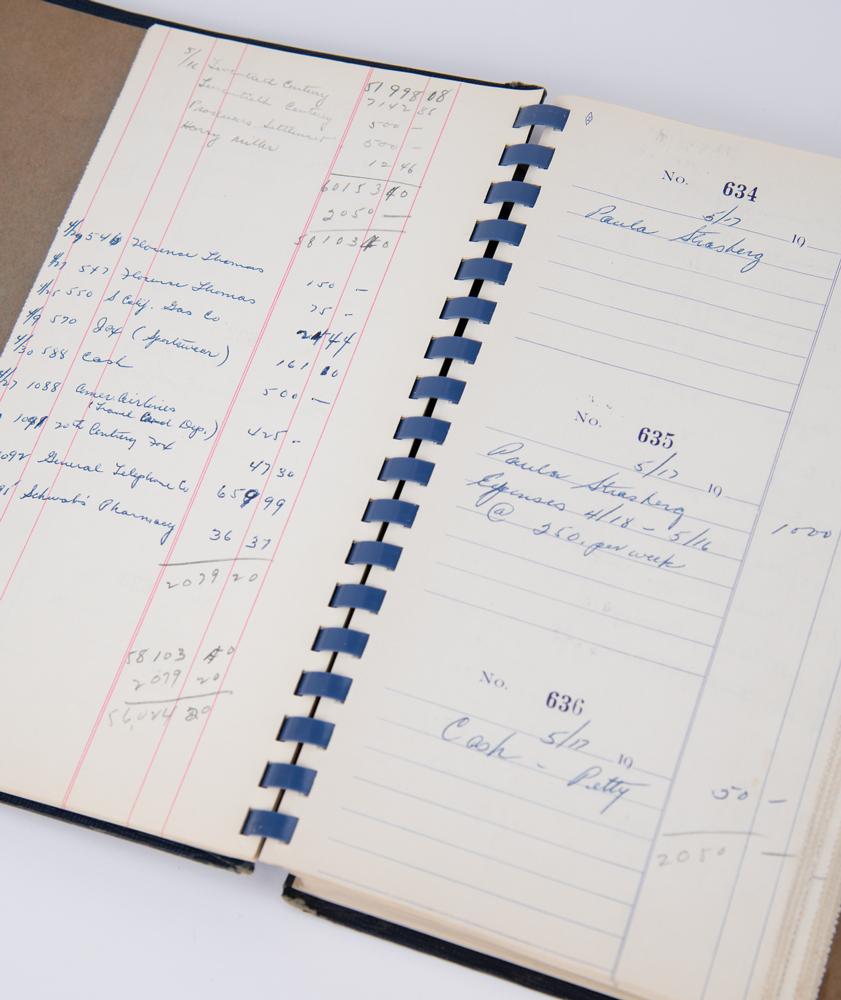 5/16 Twentieth Century 51998 08
Twentieth Century 7142 86
Producers Settlement 500 —
500 —
Henry Miller 12 46
60153 40
2050 —
58103 40
4/29 546 Florence Thomas 150 —
547 Florence Thomas 75 —
550 S Calif. Gas Co 44
570 Jax (Sportswear) 161
588 Cash 500 —
1088 Amer. Airlines
(Travel Card Dep.) 425 -
1091 20th Century Fox 47 30
General Telephone Co 659 99
Schwab's Pharmacy 36 37
2079 20
58103 40
2079 20
56,024 20
No. 634
5/17 19
Paula Strasberg
No. 635
5/17 19
Paula Strasberg
Expenses 4/18 - 5/16
@ 250. per week 1000
No. 636
5/17 19
Cash - Petty 50 —
2050 —